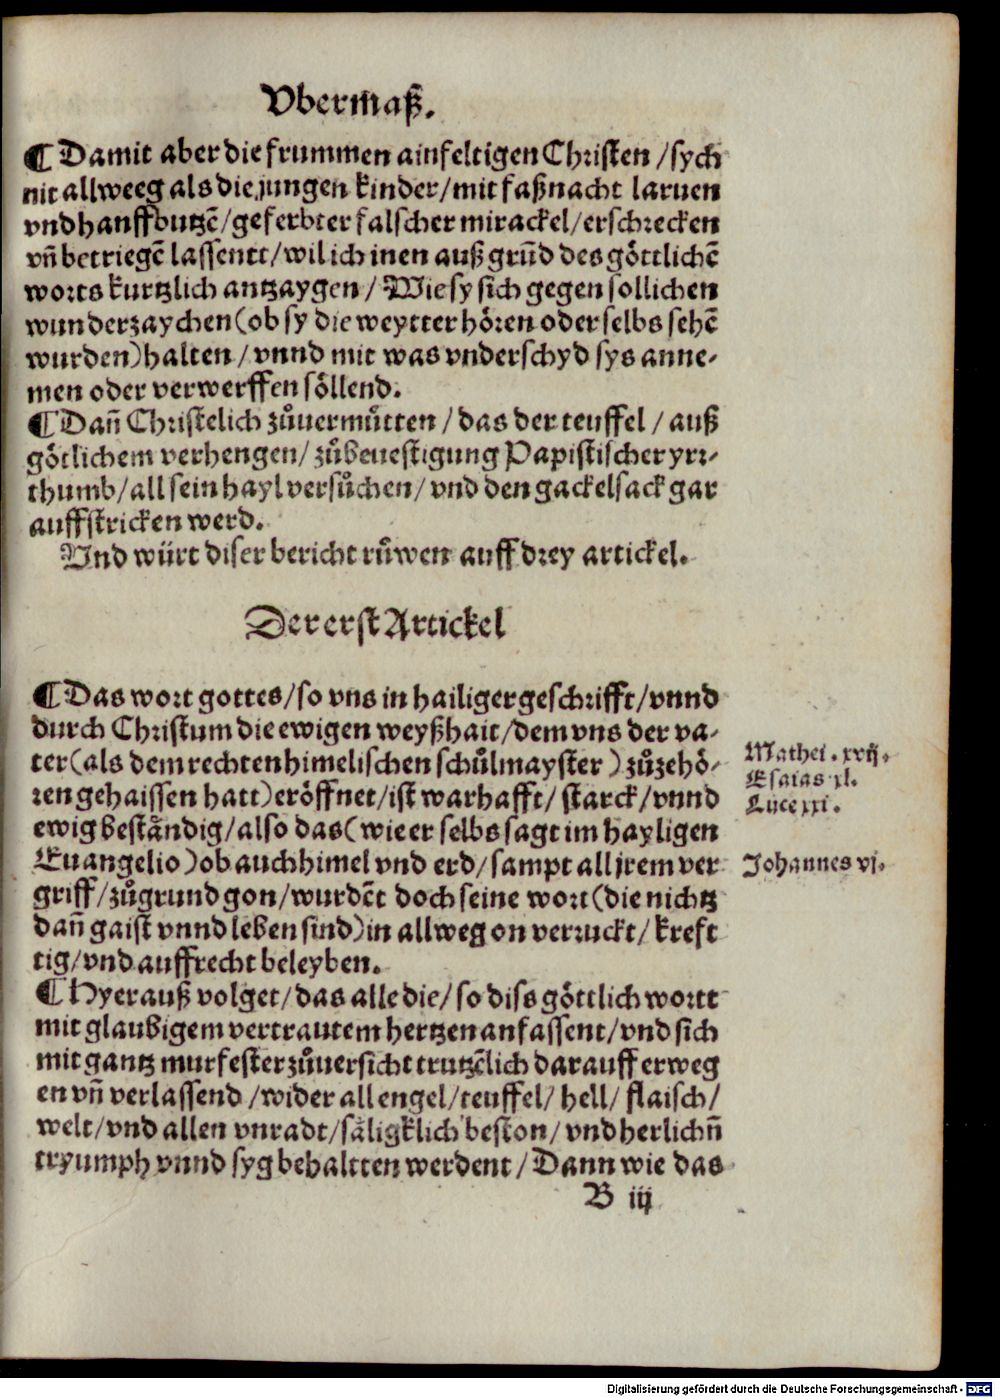 Vbermaß.
¶ Damit aber die frummen ainfeltigen Christen / sych
nit allweeg als die jungen kinder / mit faßnacht laruen
vnd hanffbutzē / geferbter falscher mirackel / erschrecken
vn̄ betriegē lassentt / wil ich inen auß grūd des göttlichē
worts kurtzlich antzaygen / Wie sy sich gegen sollichen
wunderzaychen (ob sy die weytter hören oder selbs sehē
wurden) halten / vnnd mit was vnderschyd sys anne-
men oder verwerffen söllend.
¶ Dan̄ Christelich zůuermůtten / das der teuffel / auß
götlichem verhengen / zůbeuestigung Papistischer yrr-
thumb / all sein hayl versůchen / vnd den gackelsack gar
auffstricken werd.
Vnd würt diser bericht růwen auff drey artickel.
Der erst Artickel
¶ Das wort gottes / so vns in hailiger geschrifft / vnnd
durch Christum die ewigen weyßhait / dem vns der va-
ter (als dem rechten himelischen schůlmayster) zůzehö-
ren gehaissen hatt) eröffnet / ist warhafft / starck / vnnd
ewig beständig / also das (wie er selbs sagt im hayligen
Euangelio) ob auch himel vnd erd / sampt all jrem ver
griff / zůgrund gon / wurdēt doch seine wort (die nichtz
dan̄ gaist vnnd leben sind) in allweg on verruckt / kreft
tig / vnd auffrecht beleyben.
¶ Hyerauß volget / das alle die / so diss göttlich wortt
mit glaubigem vertrautem hertzen anfassent / vnd sich
mit gantz murfester zůuersicht trutzēlich darauff erweg
en vn̄ verlassend / wider all engel / teuffel / hell / flaisch /
welt / vnd allen vnradt / säligklich beston / vnd herlichn̄
tryumph vnnd syg behaltten werdent / Dann wie das
B iij
Mathei. xvij.
Esaias xl.
Luce xxi.
Johannes vj.
Digitalisierung gefördert durch die Deutsche Forschungsgemeinschaft - DFG